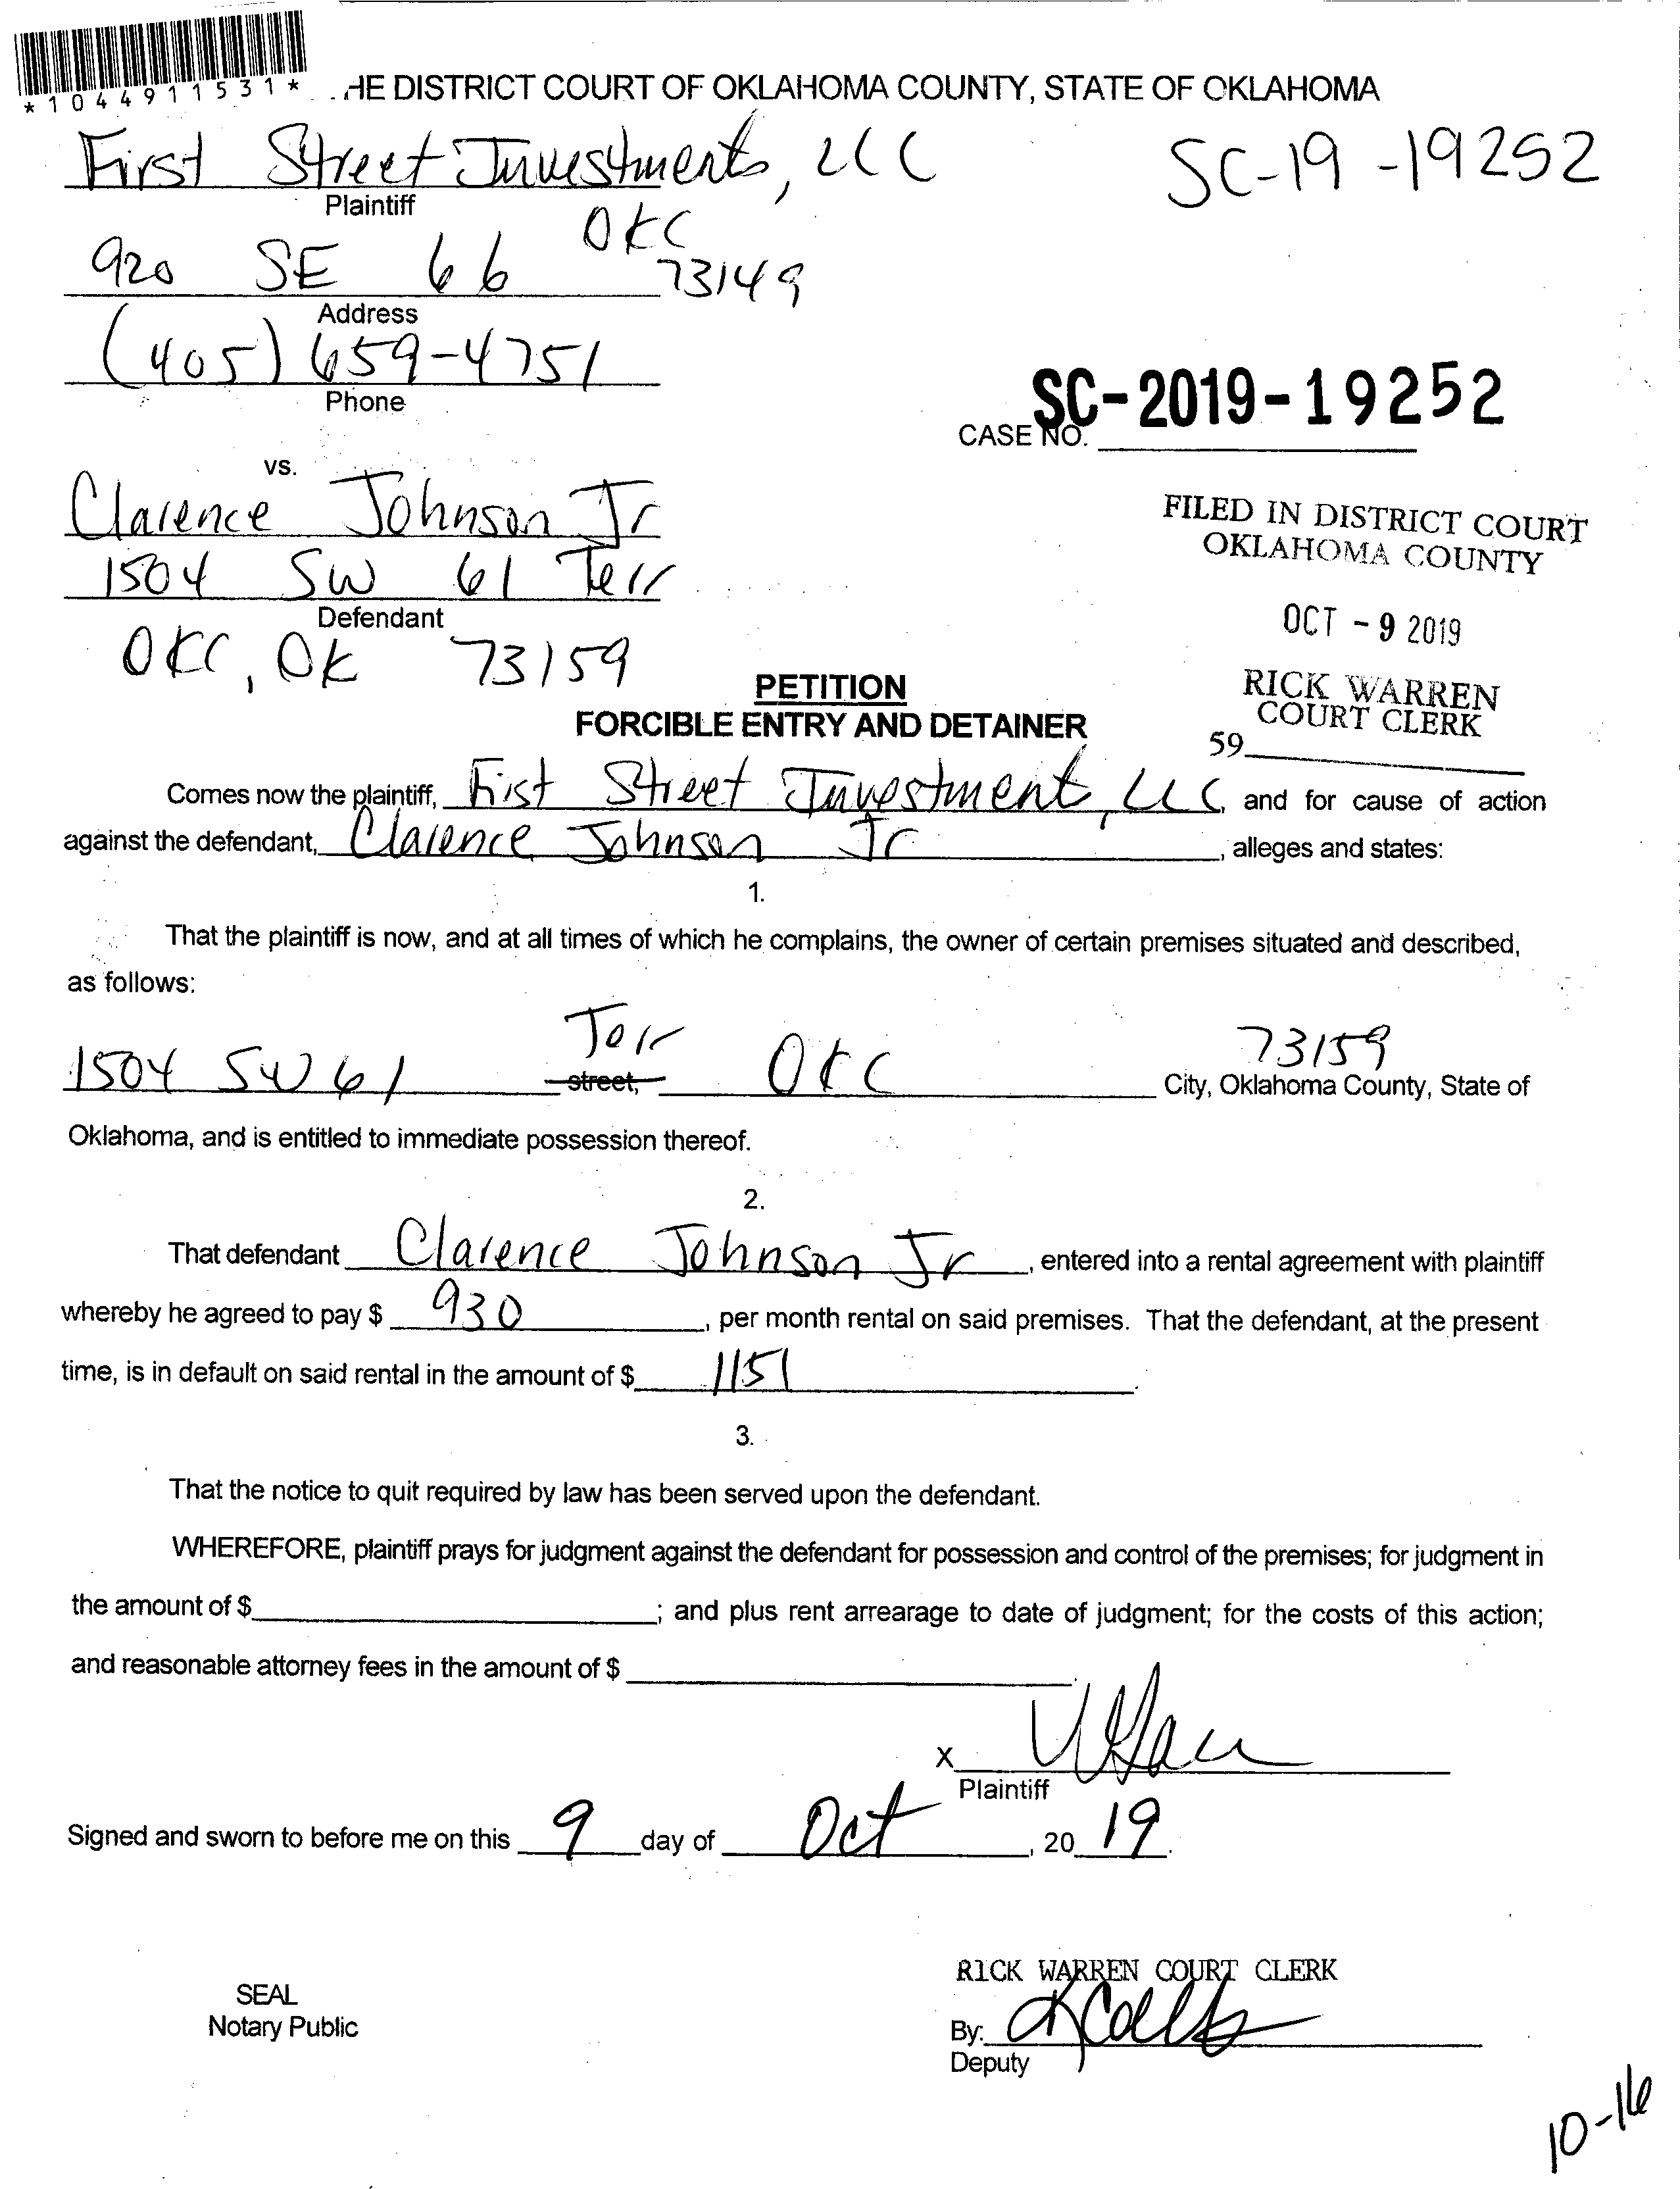 *1044911531*
HE DISTRICT COURT OF OKLAHOMA COUNTY, STATE OF OKLAHOMA
First Street Investments, LLC
SC-19-19252
Plaintiff
OKC
920 SE 66 73149
Address
(405) 659-4751
Phone
SC-2019-19252
CASE NO.
vs.
Clarence Johnson Jr
1504 SW 61 Terr
Defendant
OKC, OK 73159
FILED IN DISTRICT COURT
OKLAHOMA COUNTY
OCT - 9 2019
RICK WARREN
COURT CLERK
59
PETITION
FORCIBLE ENTRY AND DETAINER
Comes now the plaintiff, First Street Investment, LLC and for cause of action
against the defendant, Clarence Johnson Jr, alleges and states:
1.
That the plaintiff is now, and at all times of which he complains, the owner of certain premises situated and described,
as follows:
Terr 73159
1504 SW 61 street, OKC City, Oklahoma County, State of
Oklahoma, and is entitled to immediate possession thereof.
2.
That defendant Clarence Johnson Jr, entered into a rental agreement with plaintiff
whereby he agreed to pay $ 930, per month rental on said premises. That the defendant, at the present
time, is in default on said rental in the amount of $ 1151.
3.
That the notice to quit required by law has been served upon the defendant.
WHEREFORE, plaintiff prays for judgment against the defendant for possession and control of the premises; for judgment in
the amount of $; and plus rent arrearage to date of judgment; for the costs of this action;
and reasonable attorney fees in the amount of $.
X
Plaintiff
Signed and sworn to before me on this 9 day of Oct, 20 19.
SEAL
Notary Public
RICK WARREN COURT CLERK
By:
Deputy
10-16